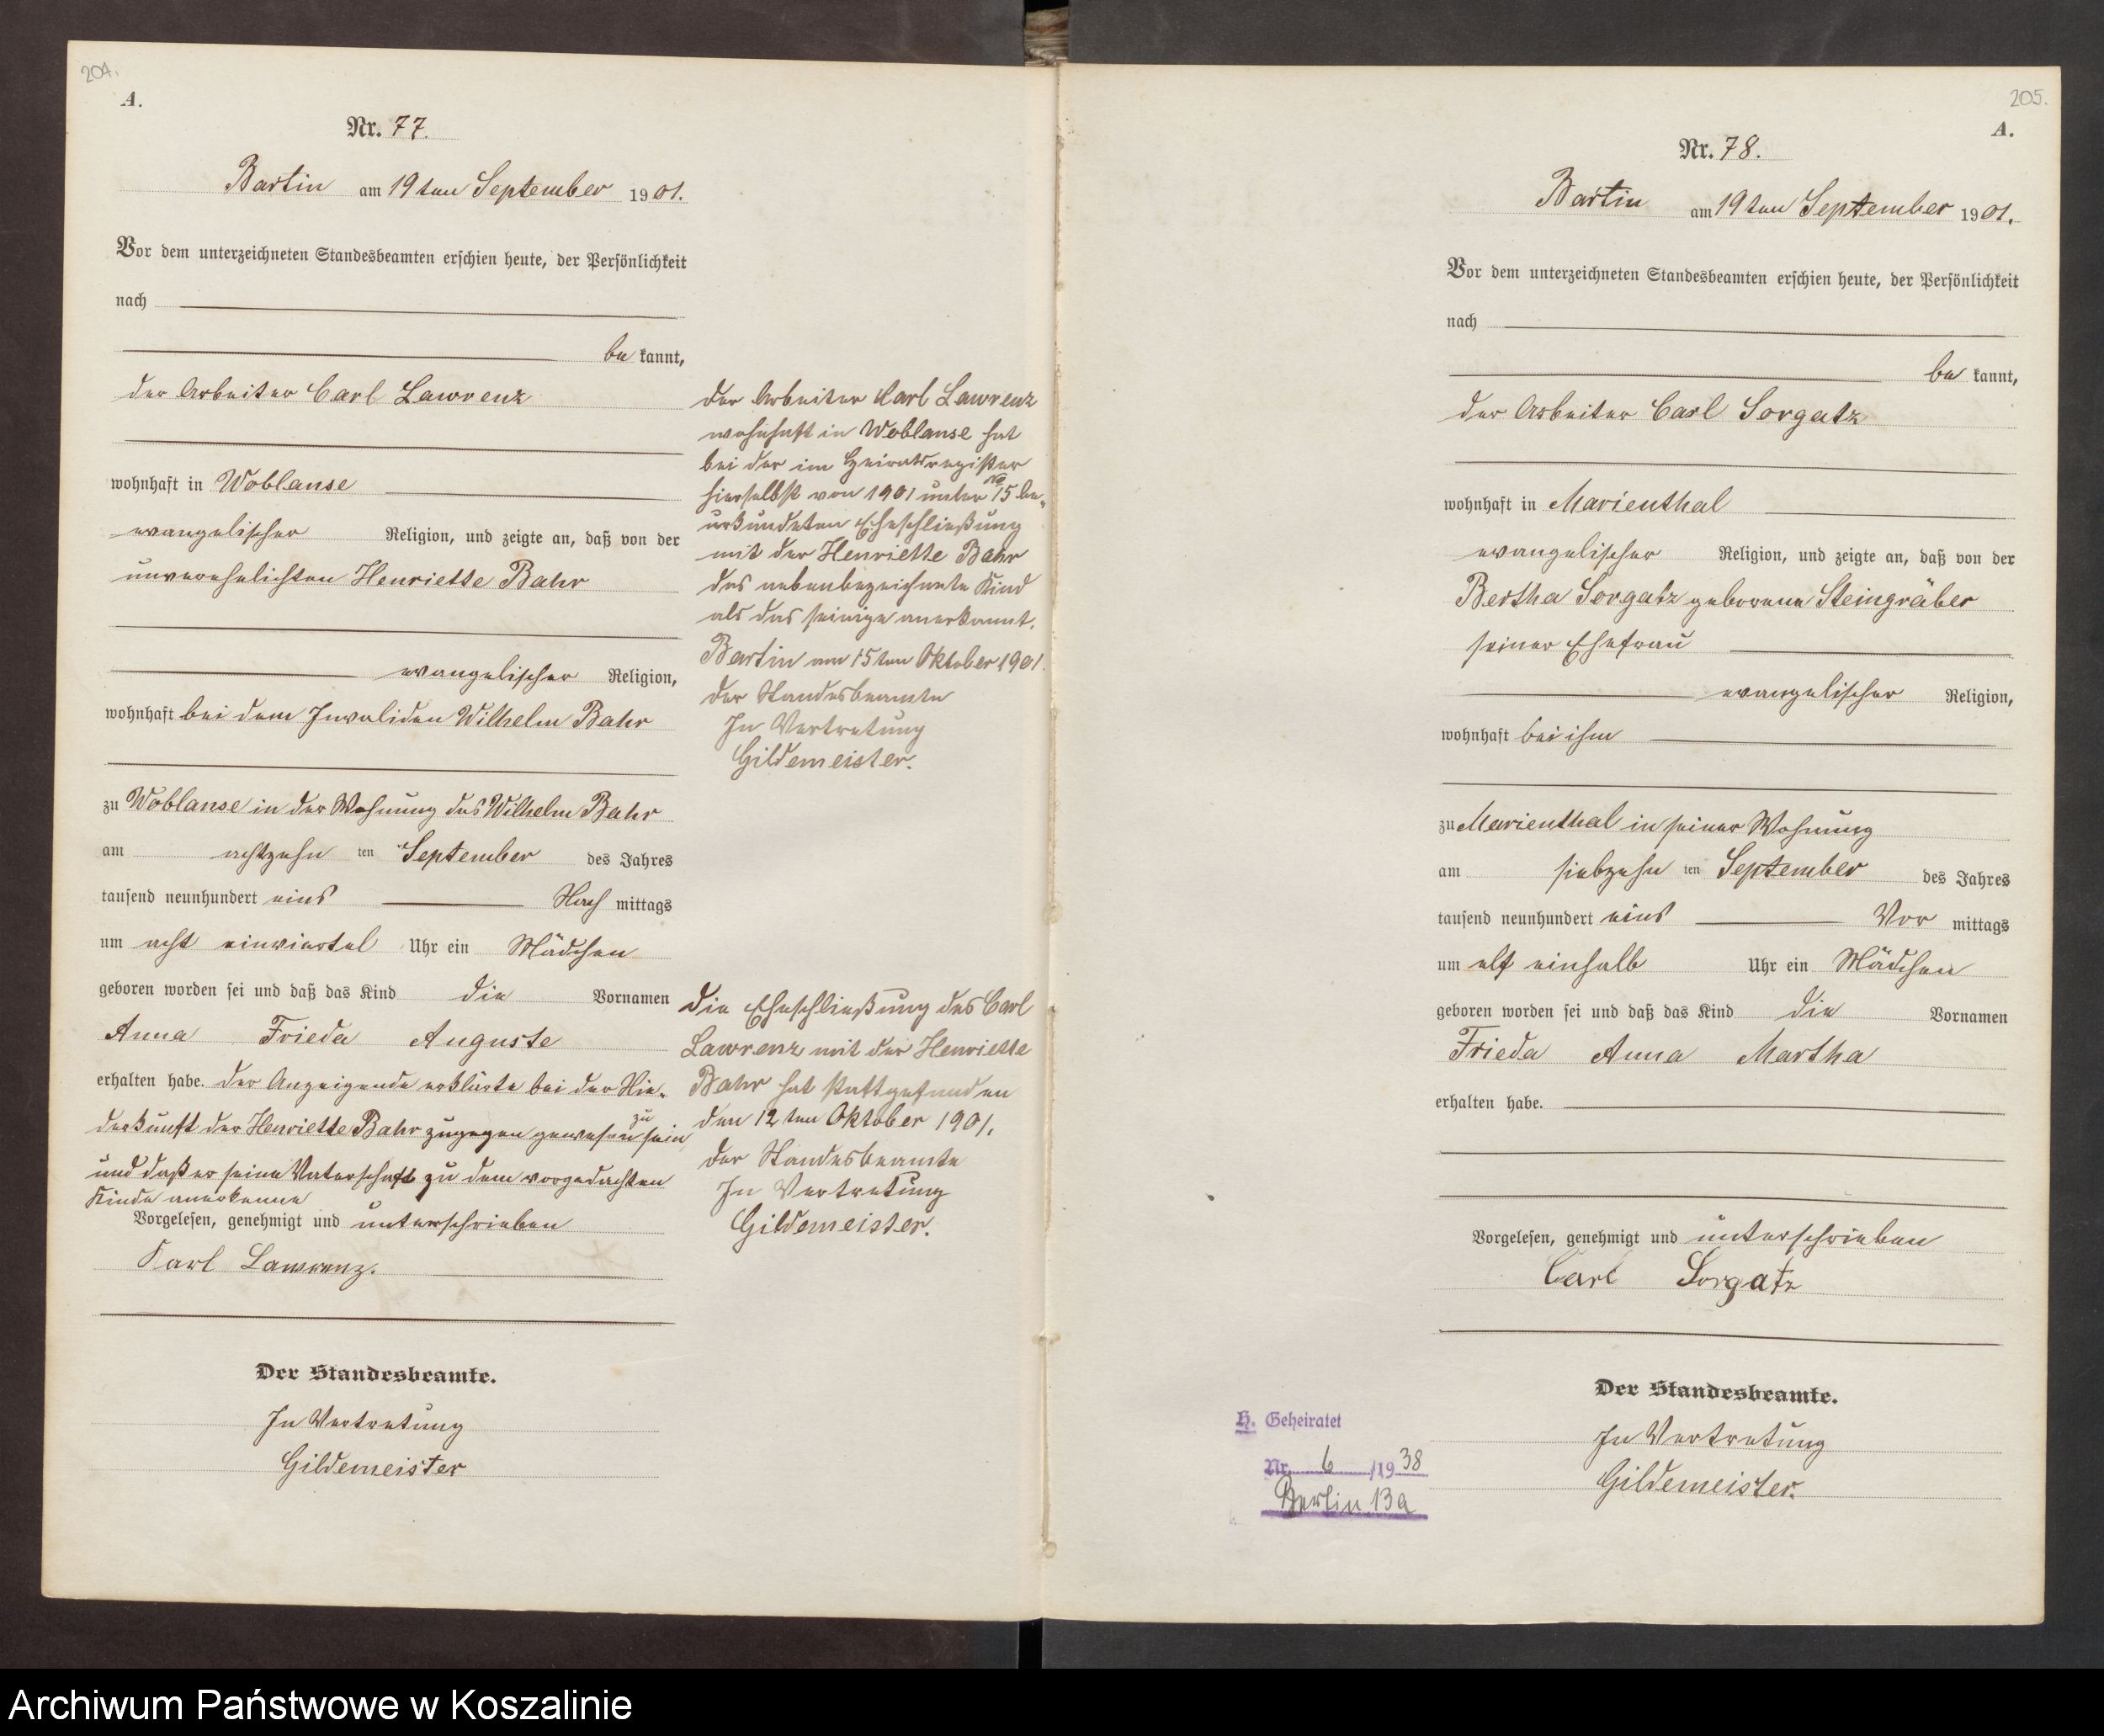 204.
A.
Nr. 77.
Bartin am 19ten September 1901.
Vor dem unterzeichneten Standesbeamten erschien heute, der Persönlichkeit
nach
be kannt,
der Arbeiter Carl Lawrenz
wohnhaft in Woblanse
evangelischer Religion, und zeigte an, daß von der
unverehelichten Henriette Bahr
evangelischer Religion,
wohnhaft bei dem Invaliden Wilhelm Bahr
zu Woblanse in der Wohnung des Wilhelm Bahr
am achtzehn ten September des Jahres
tausend neunhundert eins Nach mittags
um acht einviertel Uhr ein Mädchen
geboren worden sei und daß das Kind die Vornamen
Anna Frieda Auguste
erhalten habe. Der Anzeigende erklärte bei der Nie-
derkunft der Henriette Bahr zugegen gewesen zu sein
und daß er seine Vaterschaft zu dem vorgedachten
Kinde anerkenne
Vorgelesen, genehmigt und unterschrieben
Karl Lawrenz.
Der Standesbeamte.
In Vertretung
Gildemeister
Der Arbeiter Karl Lawrenz
wohnhaft in Woblanse hat
bei der im Heiratsregister
hierselbst von 1901 unter No 15 be-
urkundeten Eheschließung
mit der Henriette Bahr
das nebenbezeichnete Kind
als das seinige anerkannt.
Bartin am 15ten Oktober 1901.
Der Standesbeamte
In Vertretung
Gildemeister.
Die Eheschließung des Carl
Lawrenz mit der Henriette
Bahr hat stattgefunden
den 12ten Oktober 1901.
Der Standesbeamte
In Vertretung
Gildemeister.
205.
A.
Nr. 78.
Bartin am 19ten September 1901.
Vor dem unterzeichneten Standesbeamten erschien heute, der Persönlichkeit
nach
be kannt,
der Arbeiter Carl Sorgatz
wohnhaft in Marienthal
evangelischer Religion, und zeigte an, daß von der
Bertha Sorgatz geborene Steingräber
seiner Ehefrau
evangelischer Religion,
wohnhaft bei ihm
zu Marienthal in seiner Wohnung
am siebzehn ten September des Jahres
tausend neunhundert eins Vor mittags
um elf einhalb Uhr ein Mädchen
geboren worden sei und daß das Kind die Vornamen
Frieda Anna Martha
erhalten habe.
Vorgelesen, genehmigt und unterschrieben
Carl Sorgatz
Der Standesbeamte.
In Vertretung
Gildemeister.
H. Geheiratet
Nr. 6 /1938
Berlin 13a
Archiwum Państwowe w Koszalinie